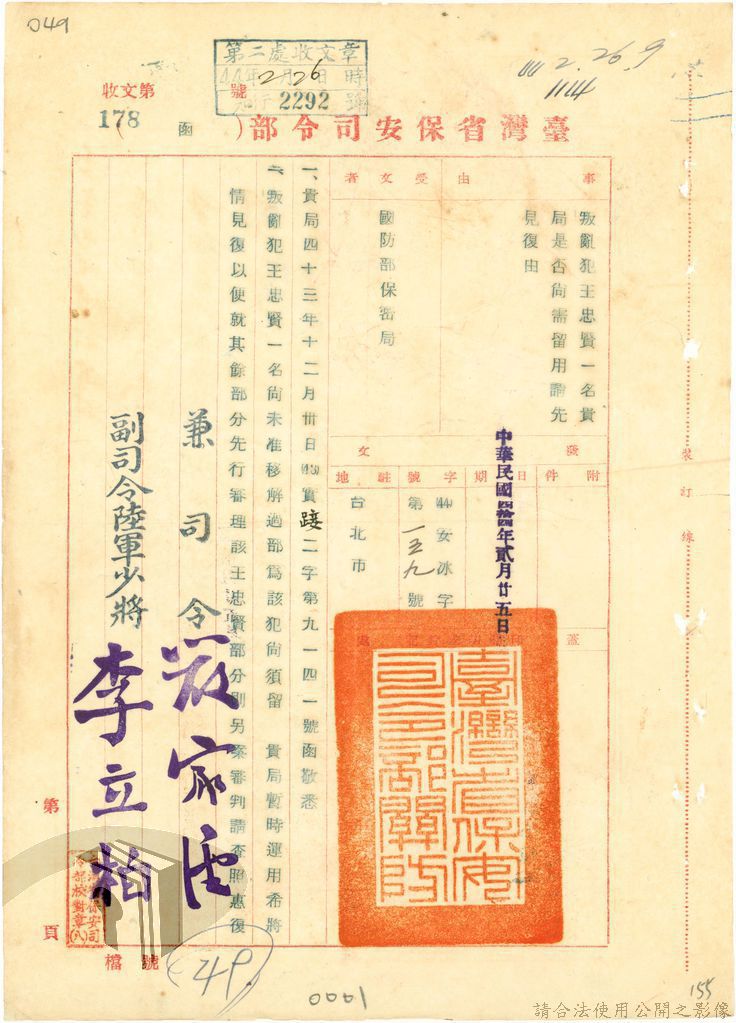 049
第二處收文章
44年2月26日 時
2292號
44 2. 26. 9
1114
收文第
178
號
臺灣省保安司令部(函)
事由
叛亂犯王忠賢一名貴
局是否尚需留用請先
見復由
受文者
國防部保密局
發文
附件
日期
中華民國肆拾肆年貳月廿五日
字號
(44)安冰字
第一五九號
駐地
台北市
臺灣省保安司令部關防
一、貴局四十三年十二月卅日(43)實踐二字第九一四一號函敬悉
二、叛亂犯王忠賢一名尚未准移解過部為該犯尚須留 貴局暫時運用希將
情見復以便就其餘部分先行審理該王忠賢部分則另案審判請查照惠復
兼司令嚴家淦
副司令陸軍少將李立柏
臺灣省保安司
令部校對章(八)
裝訂線
第
頁
檔號
49
0001
155
請合法使用公開之影像